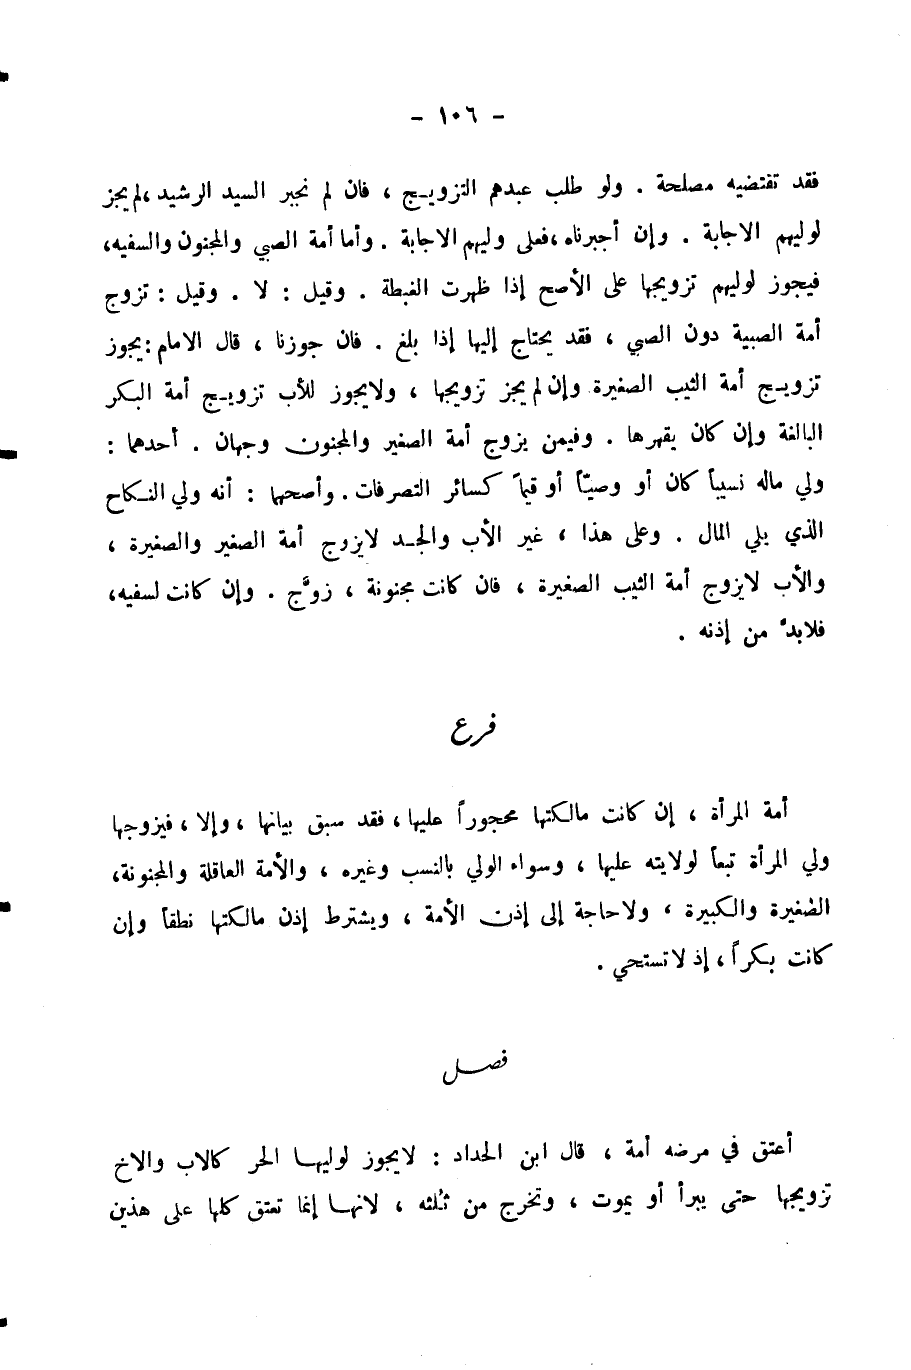 - ١٠٦ -
فقد تقتضيه مصلحة . ولو طلب عبدهم التزويـج ، فان لم نجبر السيد الرشيد ،لم يجز
لوليهم الاجابة . وإن أجبرناه ،فعلى وليهم الاجابة . وأما أمة الصبي والمجنون والسفيه،
فيجوز لوليهم تزويجها على الأصح إذا ظهرت الغبطة . وقيل : لا . وقيل : تزوج
أمة الصبية دون الصبي ، فقد يحتاج إليها إذا بلغ . فان جوزنا ، قال الامام :يجوز
تزويـج أمة الثيب الصغيرة وإن لم يجز تزويجها ، ولايجوز للأب تزويـج أمة البكر
البالغة وإن كان يقهرها . وفيمن يزوج أمة الصغير والمجنون وجهان . أحدهما :
ولي ماله نسيباً كان أو وصيّاً أو قيماً كسائر التصرفات. وأصحهما : أنه ولي النـكاح
الذي يلي المال . وعلى هذا ، غير الأب والجـد لايزوج أمة الصغير والصغيرة ،
والأب لايزوج أمة الثيب الصغيرة ، فان كانت مجنونة ، زوَّج . وإن كانت لسفيه،
فلابدَّ من إذنه .
فرع
أمة المرأة ، إن كانت مالكتها محجوراً عليها ، فقد سبق بيانها ، وإلا ، فيزوجها
ولي المرأة تبعاً لولايته عليها ، وسواء الولي بالنسب وغيره ، والأمة العاقلة والمجنونة،
الصغيرة والكبيرة ، ولاحاجة إلى إذن الأمة ، ويشترط إذن مالكتها نطقاً وإن
كانت بـكراً ، إذ لاتستحي .
فصـل
أعتق في مرضه أمة ، قال ابن الحداد : لايجوز لوليهـا الحر كالاب والاخ
تزويجها حتى يبرأ أو يموت ، وتخرج من ثلثه ، لانهـا إنما تعتق كلها على هذين